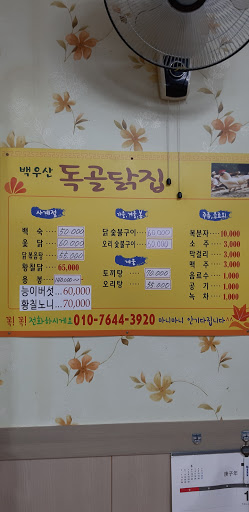 백우산 독골닭집
사계절
백 숙 ···· 50,000
옻 닭 ···· 60,000
닭볶음탕 ·· 55,000
황칠닭 ··· 65,000
용 봉
능이버섯...60,000
황칠노니...70,000
가을,겨울,봄
닭 숯불구이 ·· 60,000
오리 숯불구이 ·· 60,000
겨울
토끼탕 ···· 70,000
오리탕 ···· 55,000
주류,음료외
복분자 ··· 10,000
소 주 ···· 3,000
막걸리 ··· 3,000
맥 주 ···· 3,000
음료수 ···
공 기 ···· 1,000
녹 차 ···· 1,000
꼭! 꼭! 전화하시게요 010-7644-3920 마니마니 앵기다집니다
庚子年